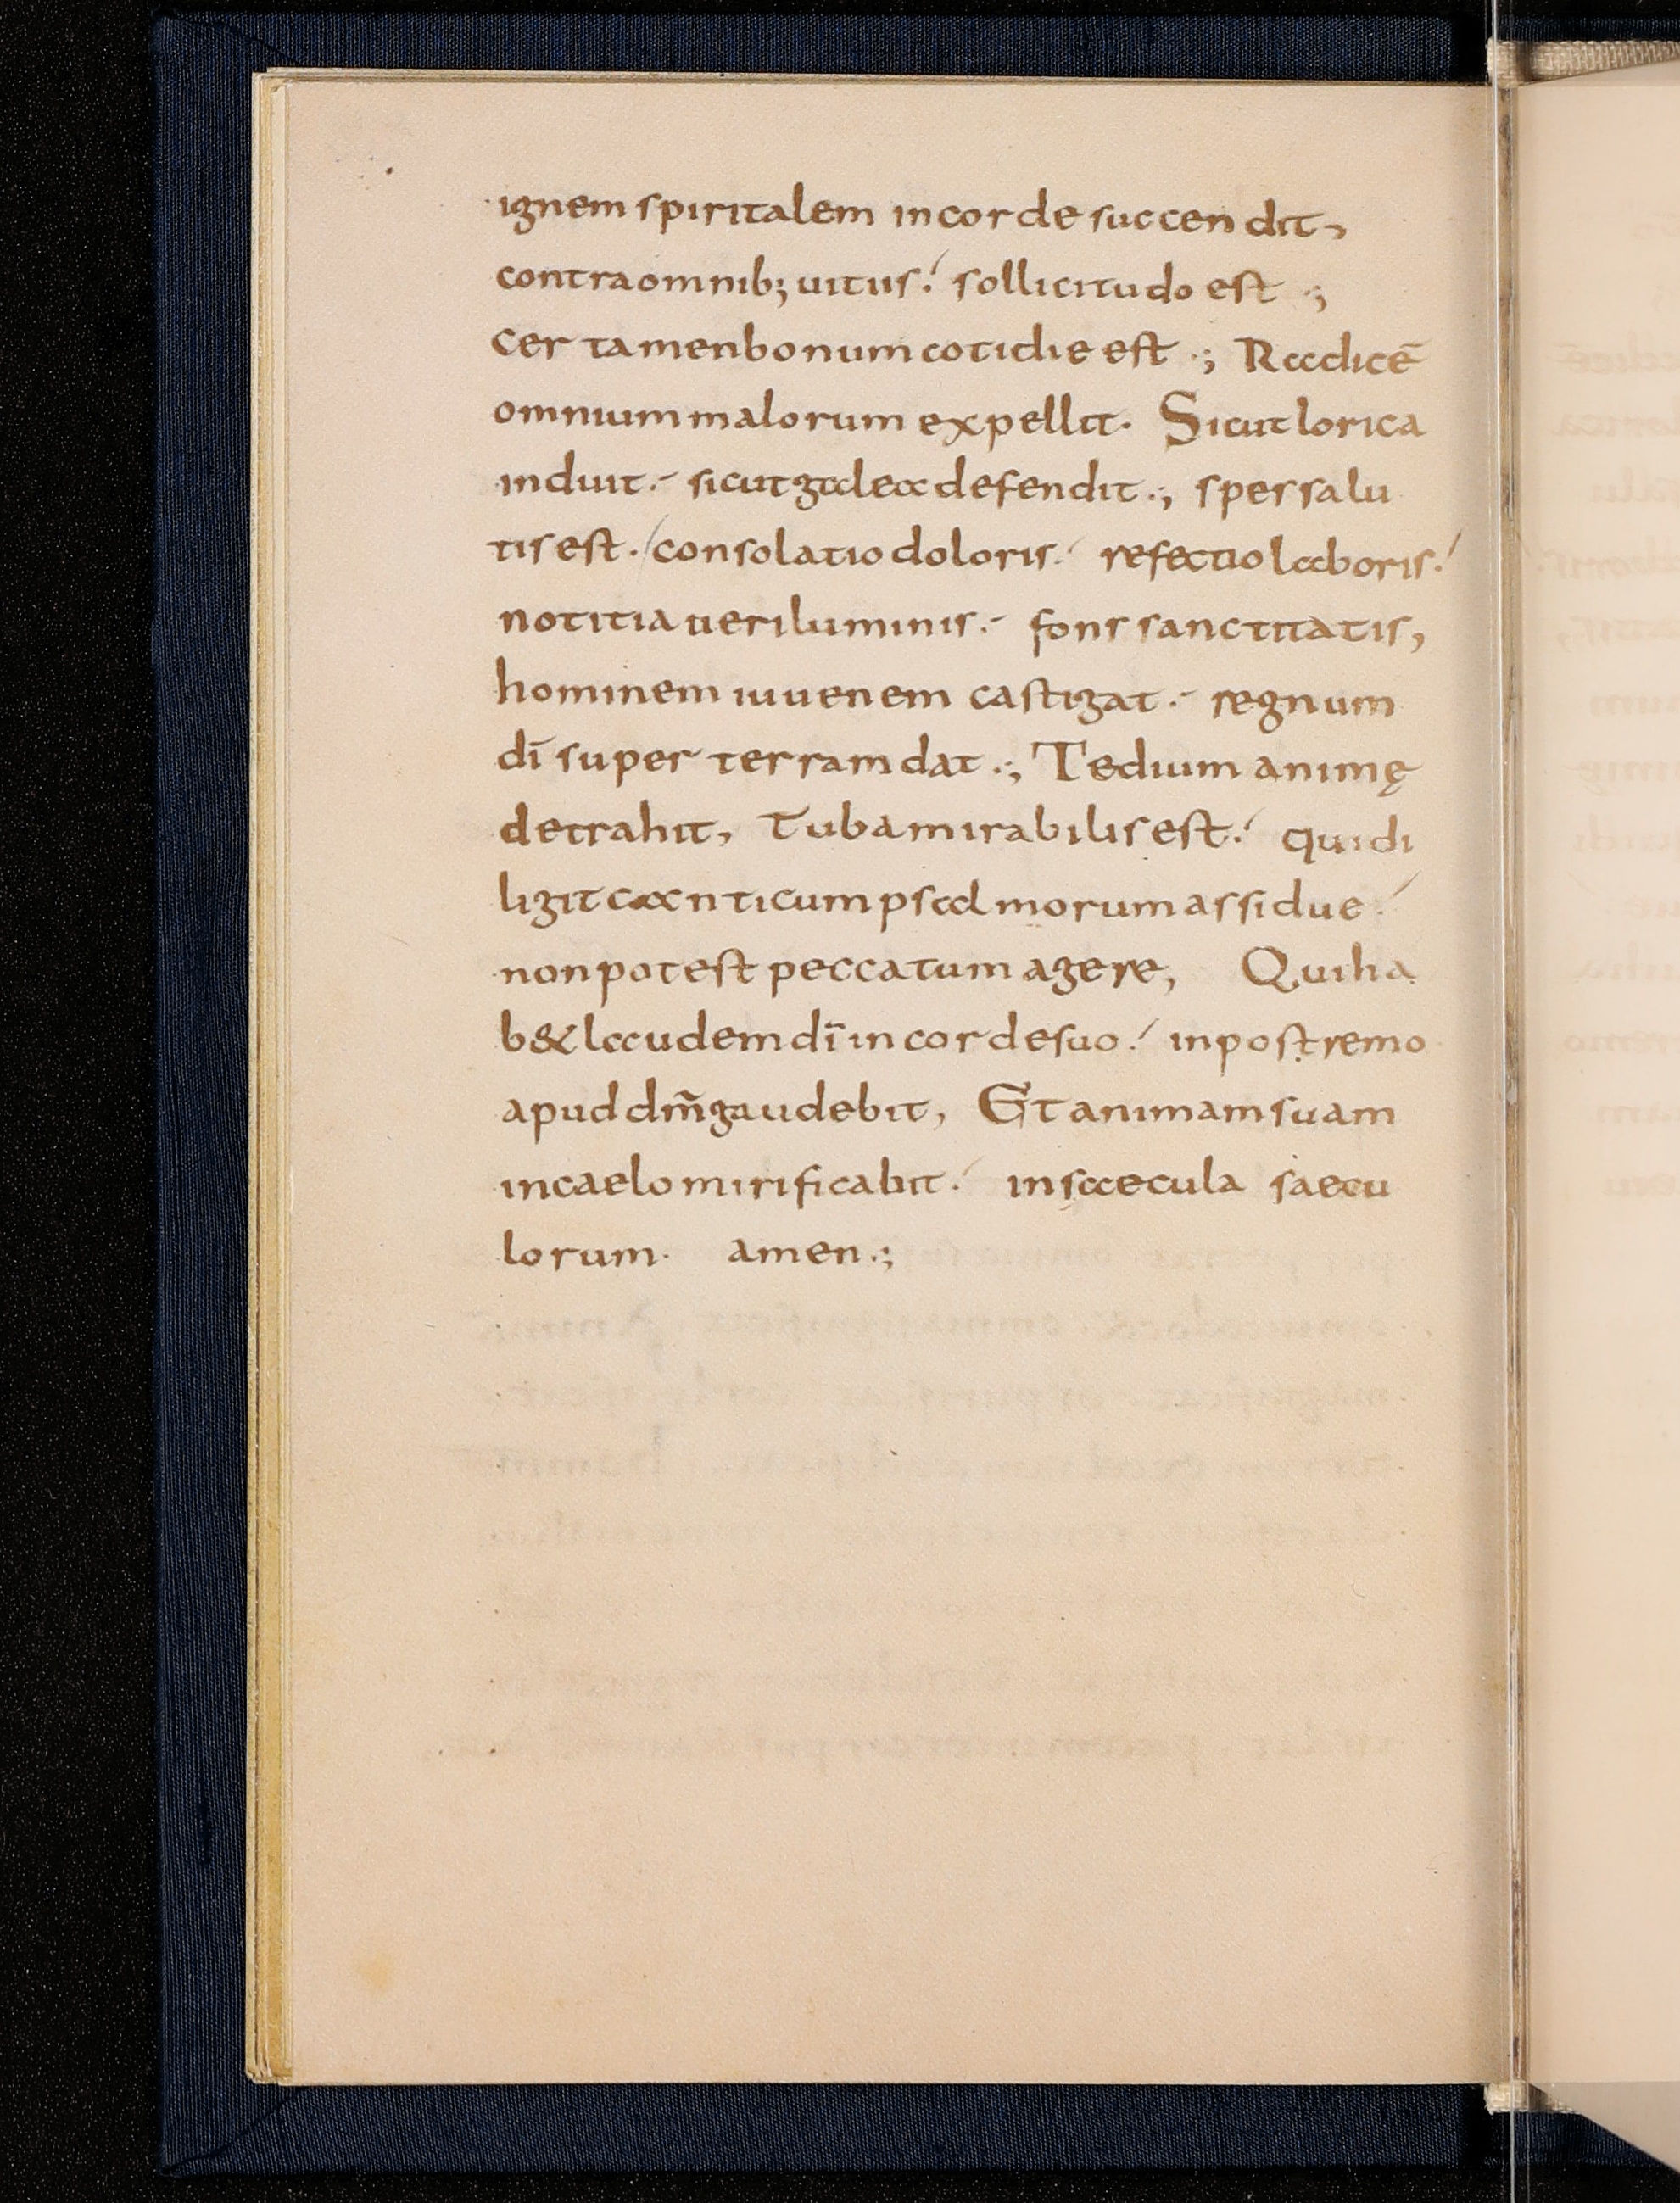 ignem spiritalem in corde succendit,
contra omnib; uitiis: sollicitudo est .;
certamen bonum cotidie est .; Radicē
omnium malorum expellit. Sicut lorica
induit. sicut galea defendit .; spes salu
tis est. consolatio doloris. refectio laboris.
notitia ueri luminis. fons sanctitatis,
hominem iuuenem castigat. regnum
dī super terram dat .; Tedium animę
detrahit, tuba mirabilis est. qui di
ligit canticum psalmorum assidue.
non potest peccatum agere, Qui ha
b& laudem dī in corde suo. in postremo
apud dm̄ gaudebit, Et animam suam
in caelo mirificabit. in saecula saecu
lorum. amen .;